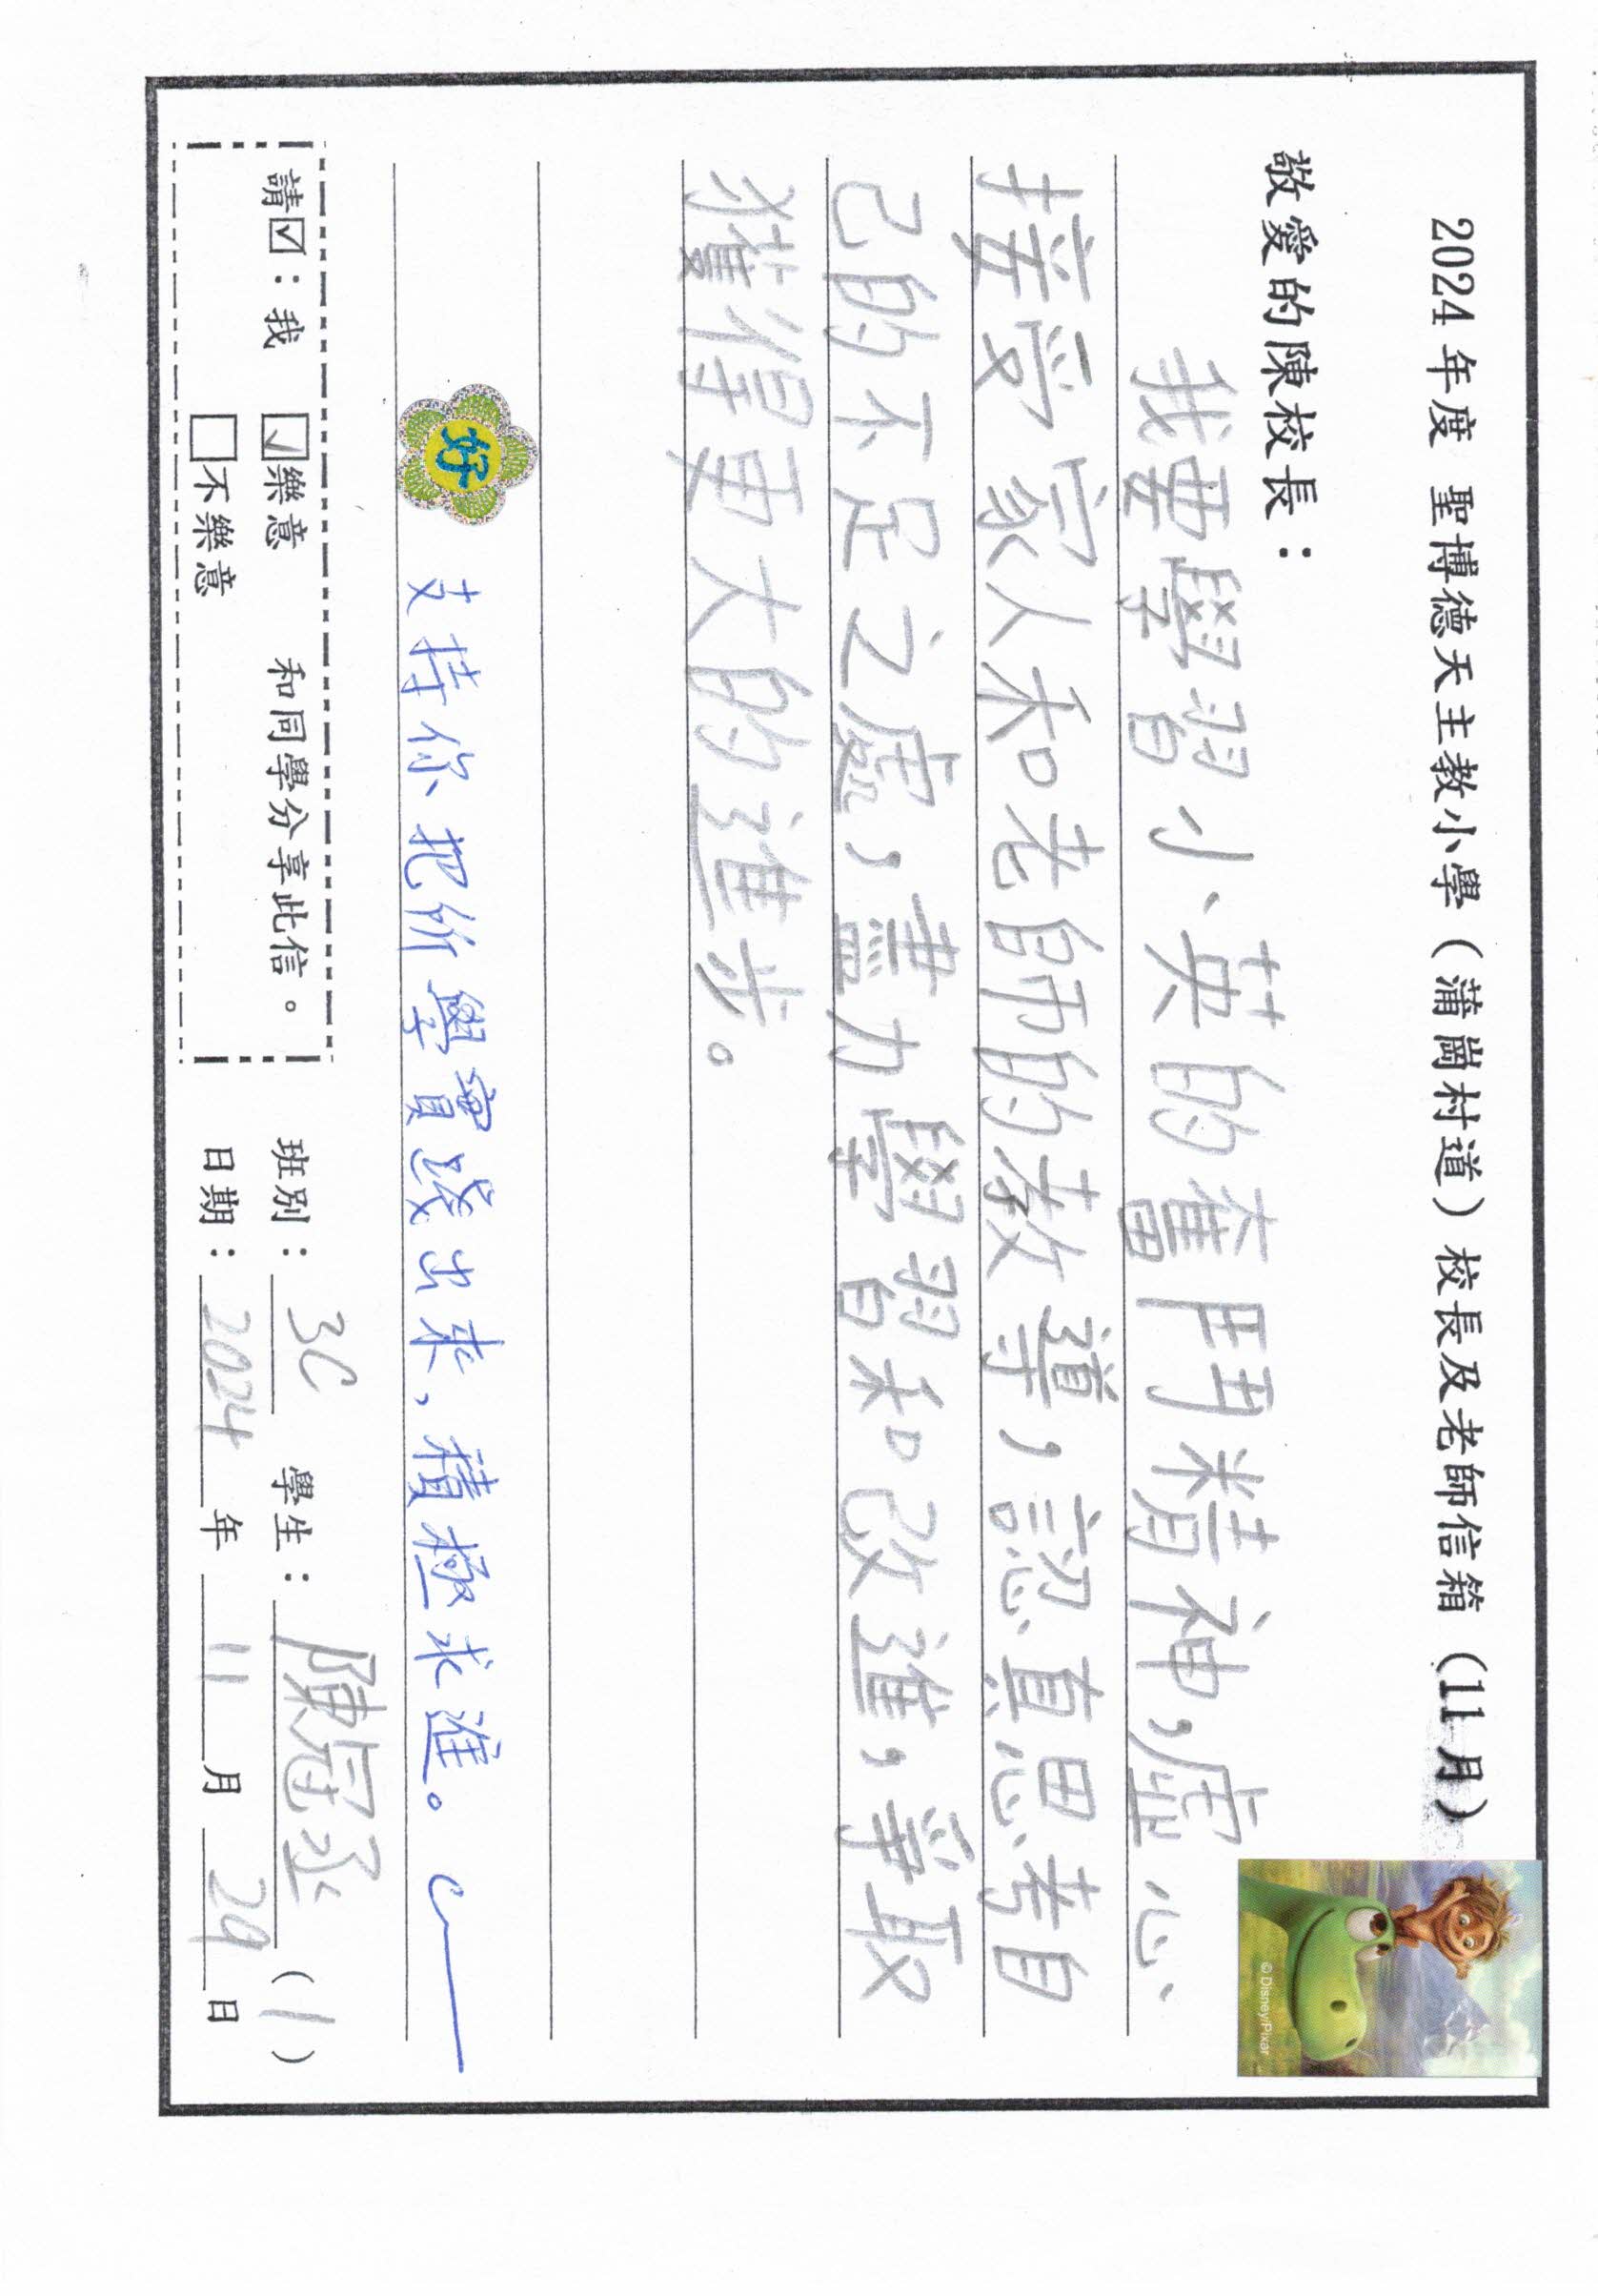 2024 年度 聖博德天主教小學（蒲崗村道）校長及老師信箱（11月）
敬愛的陳校長：
我要學習小英的奮鬥精神，虛心
接受家人和老師的教導，認真思考自
己的不足之處，盡力學習和改進，爭取
獲得更大的進步。
好
支持你把所學實踐出來，積極求進。
請☑：我 ☑樂意 和同學分享此信。
☐不樂意
班別：3C 學生：陳冠丞（1）
日期：2024 年 11 月 29 日
© Disney/Pixar